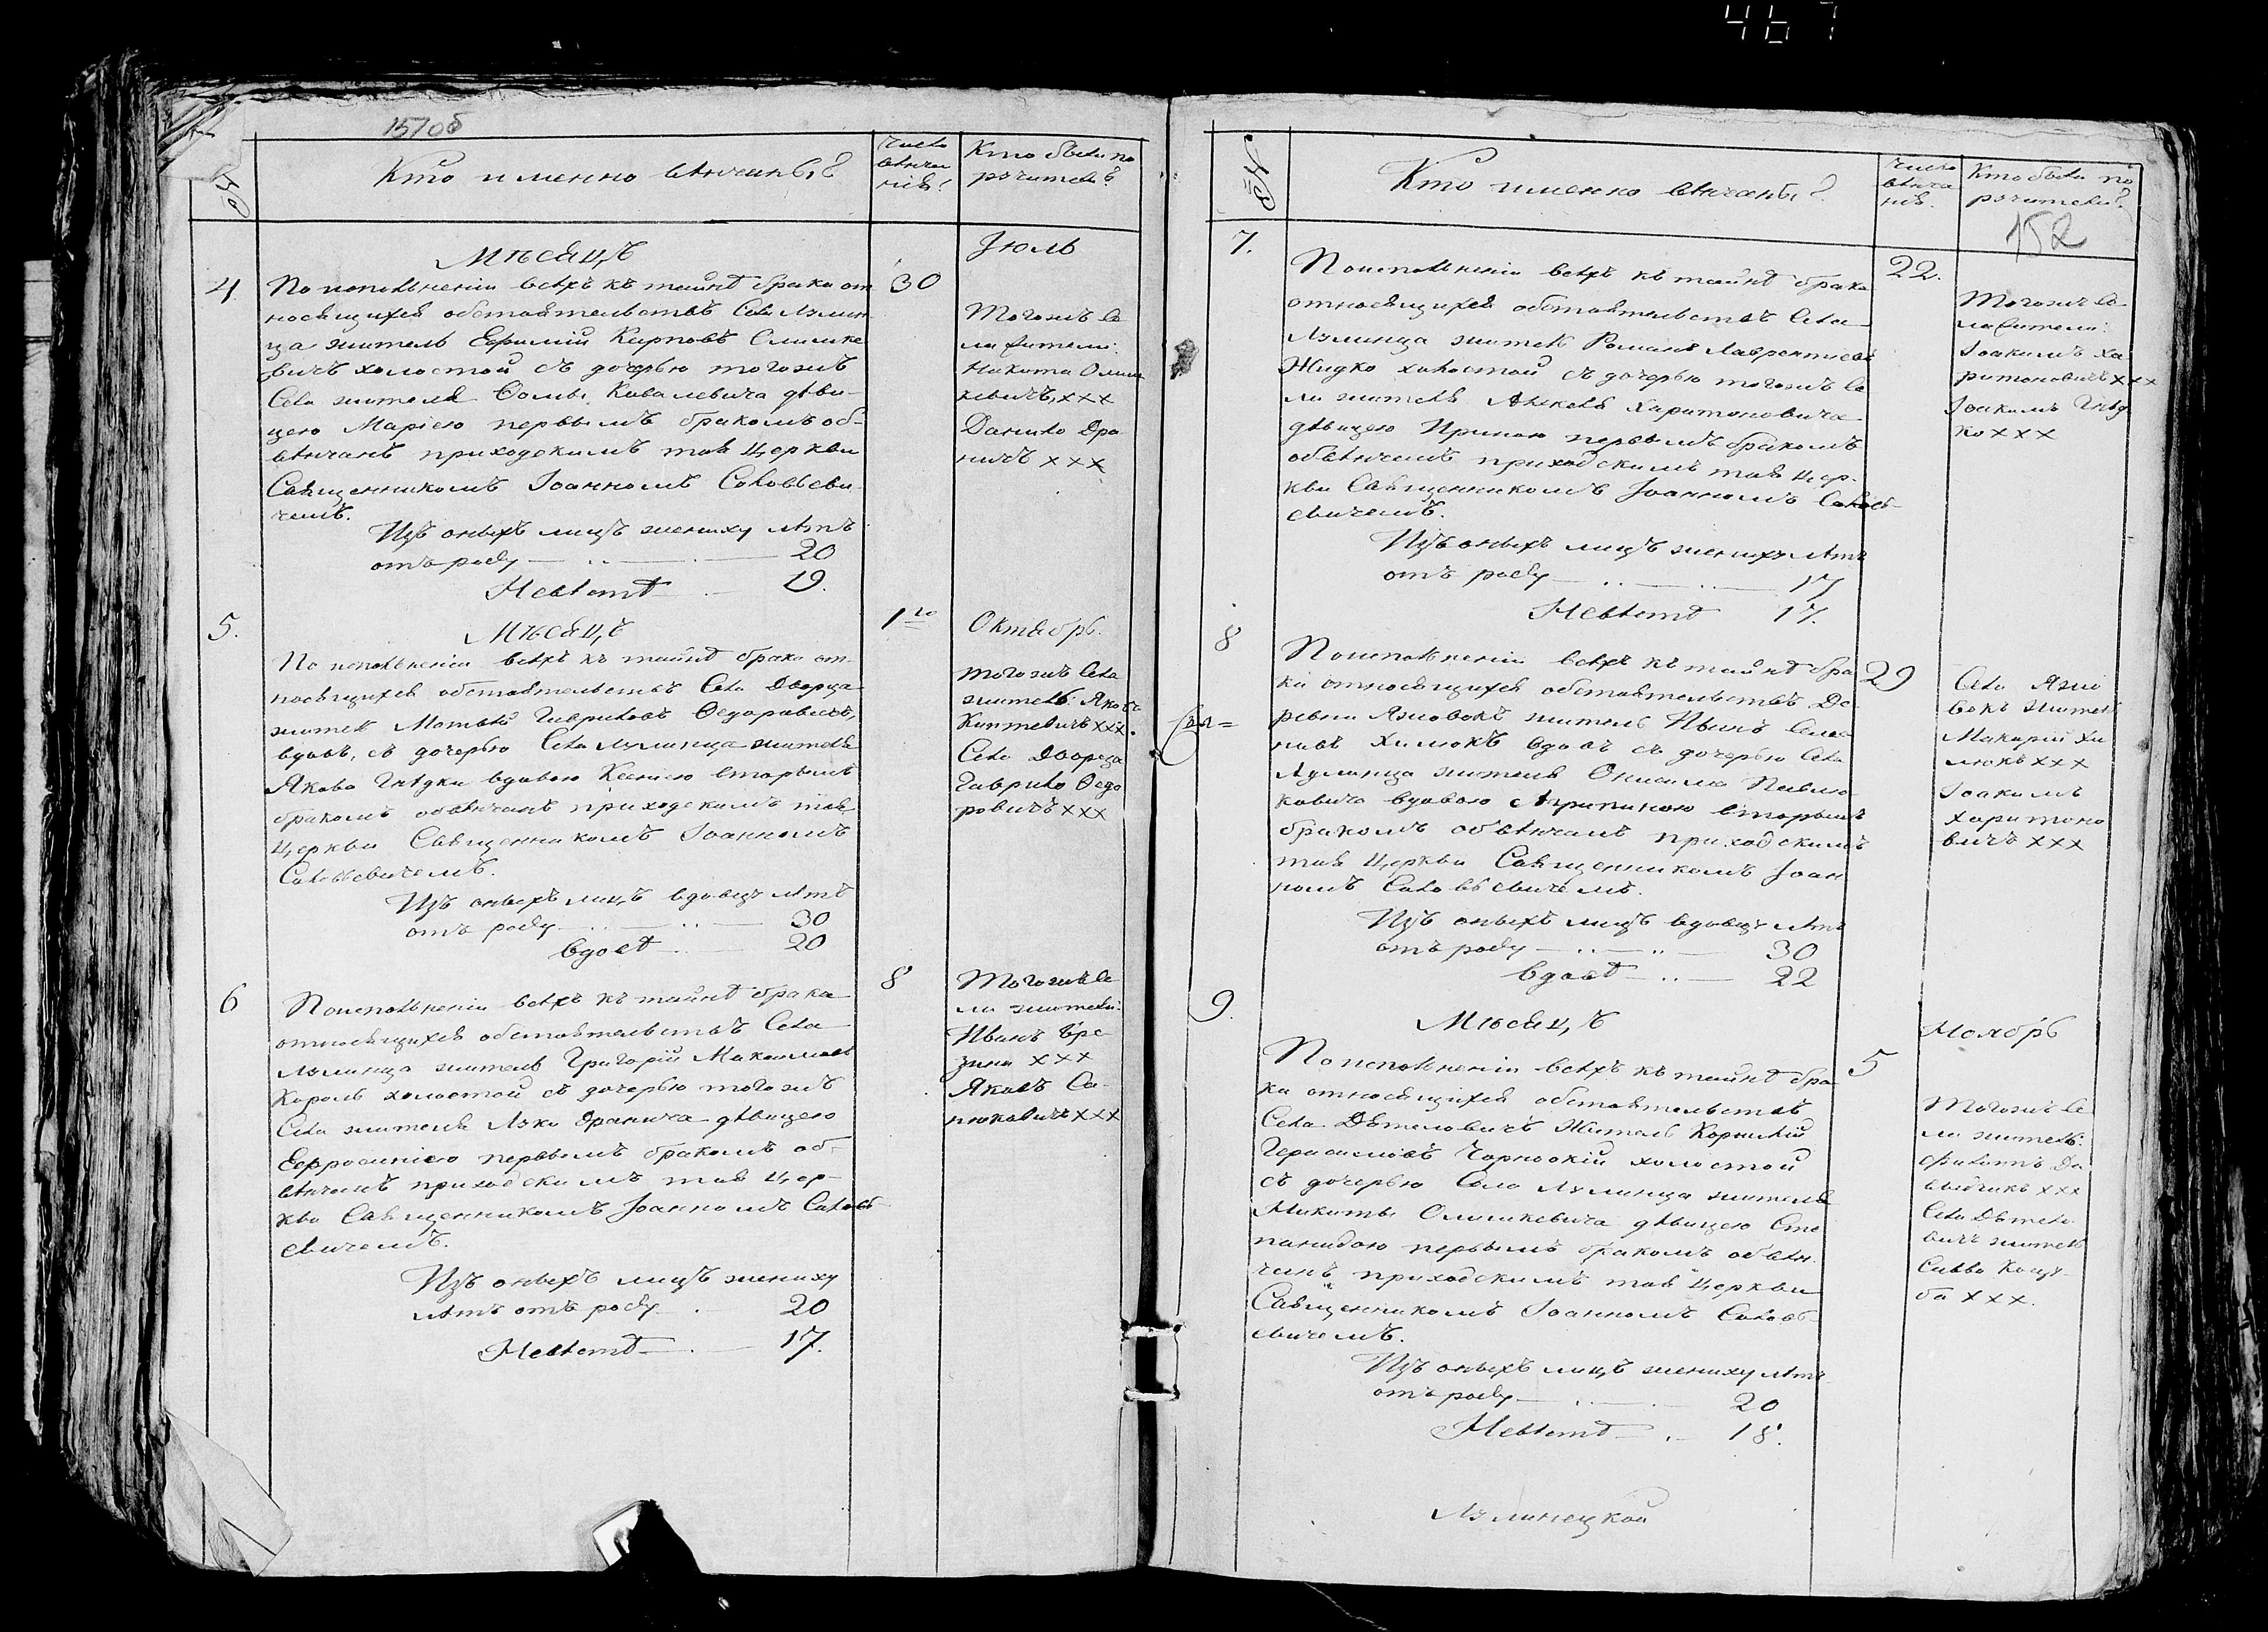 467
151об
№
Кто именно вѣнчаны?
Число вѣнча нія?
Кто были по ручители?
Мѣсяцъ
Іюль
4
30
По исполненіи всѣхъ къ тайнѣ брака от
носящихся обстоятельствъ Села Лулин
ца житель Ефимій Карповъ Олишке
вичъ холостой съ дочерью тогожъ
Села жителя Ѳомы Ковалевича дѣви-
цею Маріею первымъ бракомъ об-
вѣнчанъ приходскимъ тоя Церкви
Священникомъ Іоанномъ Соловьеви
чемъ.
Изъ оныхъ лицъ жениху лѣтъ
отъ роду 20
Невѣстѣ 19.
Тогожъ Се
ла жители:
Никита Олиш
кевичъ, xxx
Данило Дра
ничъ xxx
5.
Мѣсяцъ
1го
Октябрь.
По исполненіи всѣхъ къ тайнѣ брака от-
носящихся обстоятельствъ Села Дворца
житель Матвѣй Гавриловъ Ѳедоровичъ,
вдовъ, съ дочерью Села Лулинца жителя
Якова Гнѣдки вдовою Ксеніею вторымъ
бракомъ обвѣнчанъ приходскимъ тоя
Церкви Священникомъ Іоанномъ
Соловьевичемъ.
Изъ оныхъ лицъ вдовцу лѣтъ
отъ роду 30
Вдовѣ 20
тогожъ Села
житель: Яковъ
xxx.
Села Дворца
Гаврило Ѳедо
ровичъ xxx
6
8
По исполненіи всѣхъ къ тайнѣ брака
относящихся обстоятельствъ Села
Лулинца житель Григорій Максимовъ
Король холостой съ дочерью тогожъ
Села жителя Луки Дранича дѣвицею
Евфросиніею первымъ бракомъ об-
вѣнчанъ приходскимъ тоя Цер-
кви Священникомъ Іоанномъ Соловь-
евичемъ.
Изъ оныхъ лицъ жениху
лѣтъ отъ роду 20
Невѣстѣ 17.
Тогожъ Се
ла жители:
Иванъ Бре
зина xxx
Яковъ Са-
пюковичъ xxx
№
Кто именно вѣнчаны?
Число вѣнча нія.
Кто были по ручители?
152
7.
22.
По исполненіи всѣхъ къ тайнѣ брака
относящихся обстоятельствъ Села
Лулинца житель Романъ Лаврентіевъ
Жидко холостой съ дочерью тогожъ Се
ла жителя Алексѣя Харитоновича
дѣвицею Ириною первымъ бракомъ
обвѣнчанъ приходскимъ тоя Цер-
кви Священникомъ Іоанномъ Соловь-
евичемъ.
Изъ оныхъ лицъ жениху лѣтъ
отъ роду 17
Невѣстѣ 17.
Тогожъ Се-
ла жители:
Іоакимъ Ха
ритоновичъ xxx
Іоакимъ Гнѣд
ко xxx
8
29
По исполненіи всѣхъ къ тайнѣ бра
ка относящихся обстоятельствъ Де
ревни Язвовокъ житель Иванъ
Химокъ вдовъ съ дочерью Села
Лулинца жителя Онисима Павлю
ковича вдовою Агрипиною вторымъ
бракомъ обвѣнчанъ приходскимъ
тоя Церкви Священникомъ Іоан
номъ Соловьевичемъ.
Изъ оныхъ лицъ вдовцу лѣтъ
отъ роду 30
Вдовѣ 22
Села Язво
вокъ житель
Макарій Хи
мокъ xxx
Іоакимъ
Харитоно
вичъ xxx
9.
Мѣсяцъ
Ноябрь
5
По исполненіи всѣхъ къ тайнѣ бра
ка относящихся обстоятельствъ
Села Дѣтеловичъ Житель Корнилій
Герасимовъ Чорноокій холостой
съ дочерью Села Лулинца жителя
Микиты Олишкевича дѣвицею Сте
панидою первымъ бракомъ обвѣн-
чанъ приходскимъ тоя Церкви
Священникомъ Іоанномъ Соловь-
евичемъ.
Изъ оныхъ лицъ жениху лѣтъ
отъ роду 20
Невѣстѣ 18.
Тогожъ Се
ла житель:
Филиппъ Да
xxx
Села Дѣтело-
вичъ житель
Савва Коцу-
ба xxx.
Лулинецкой